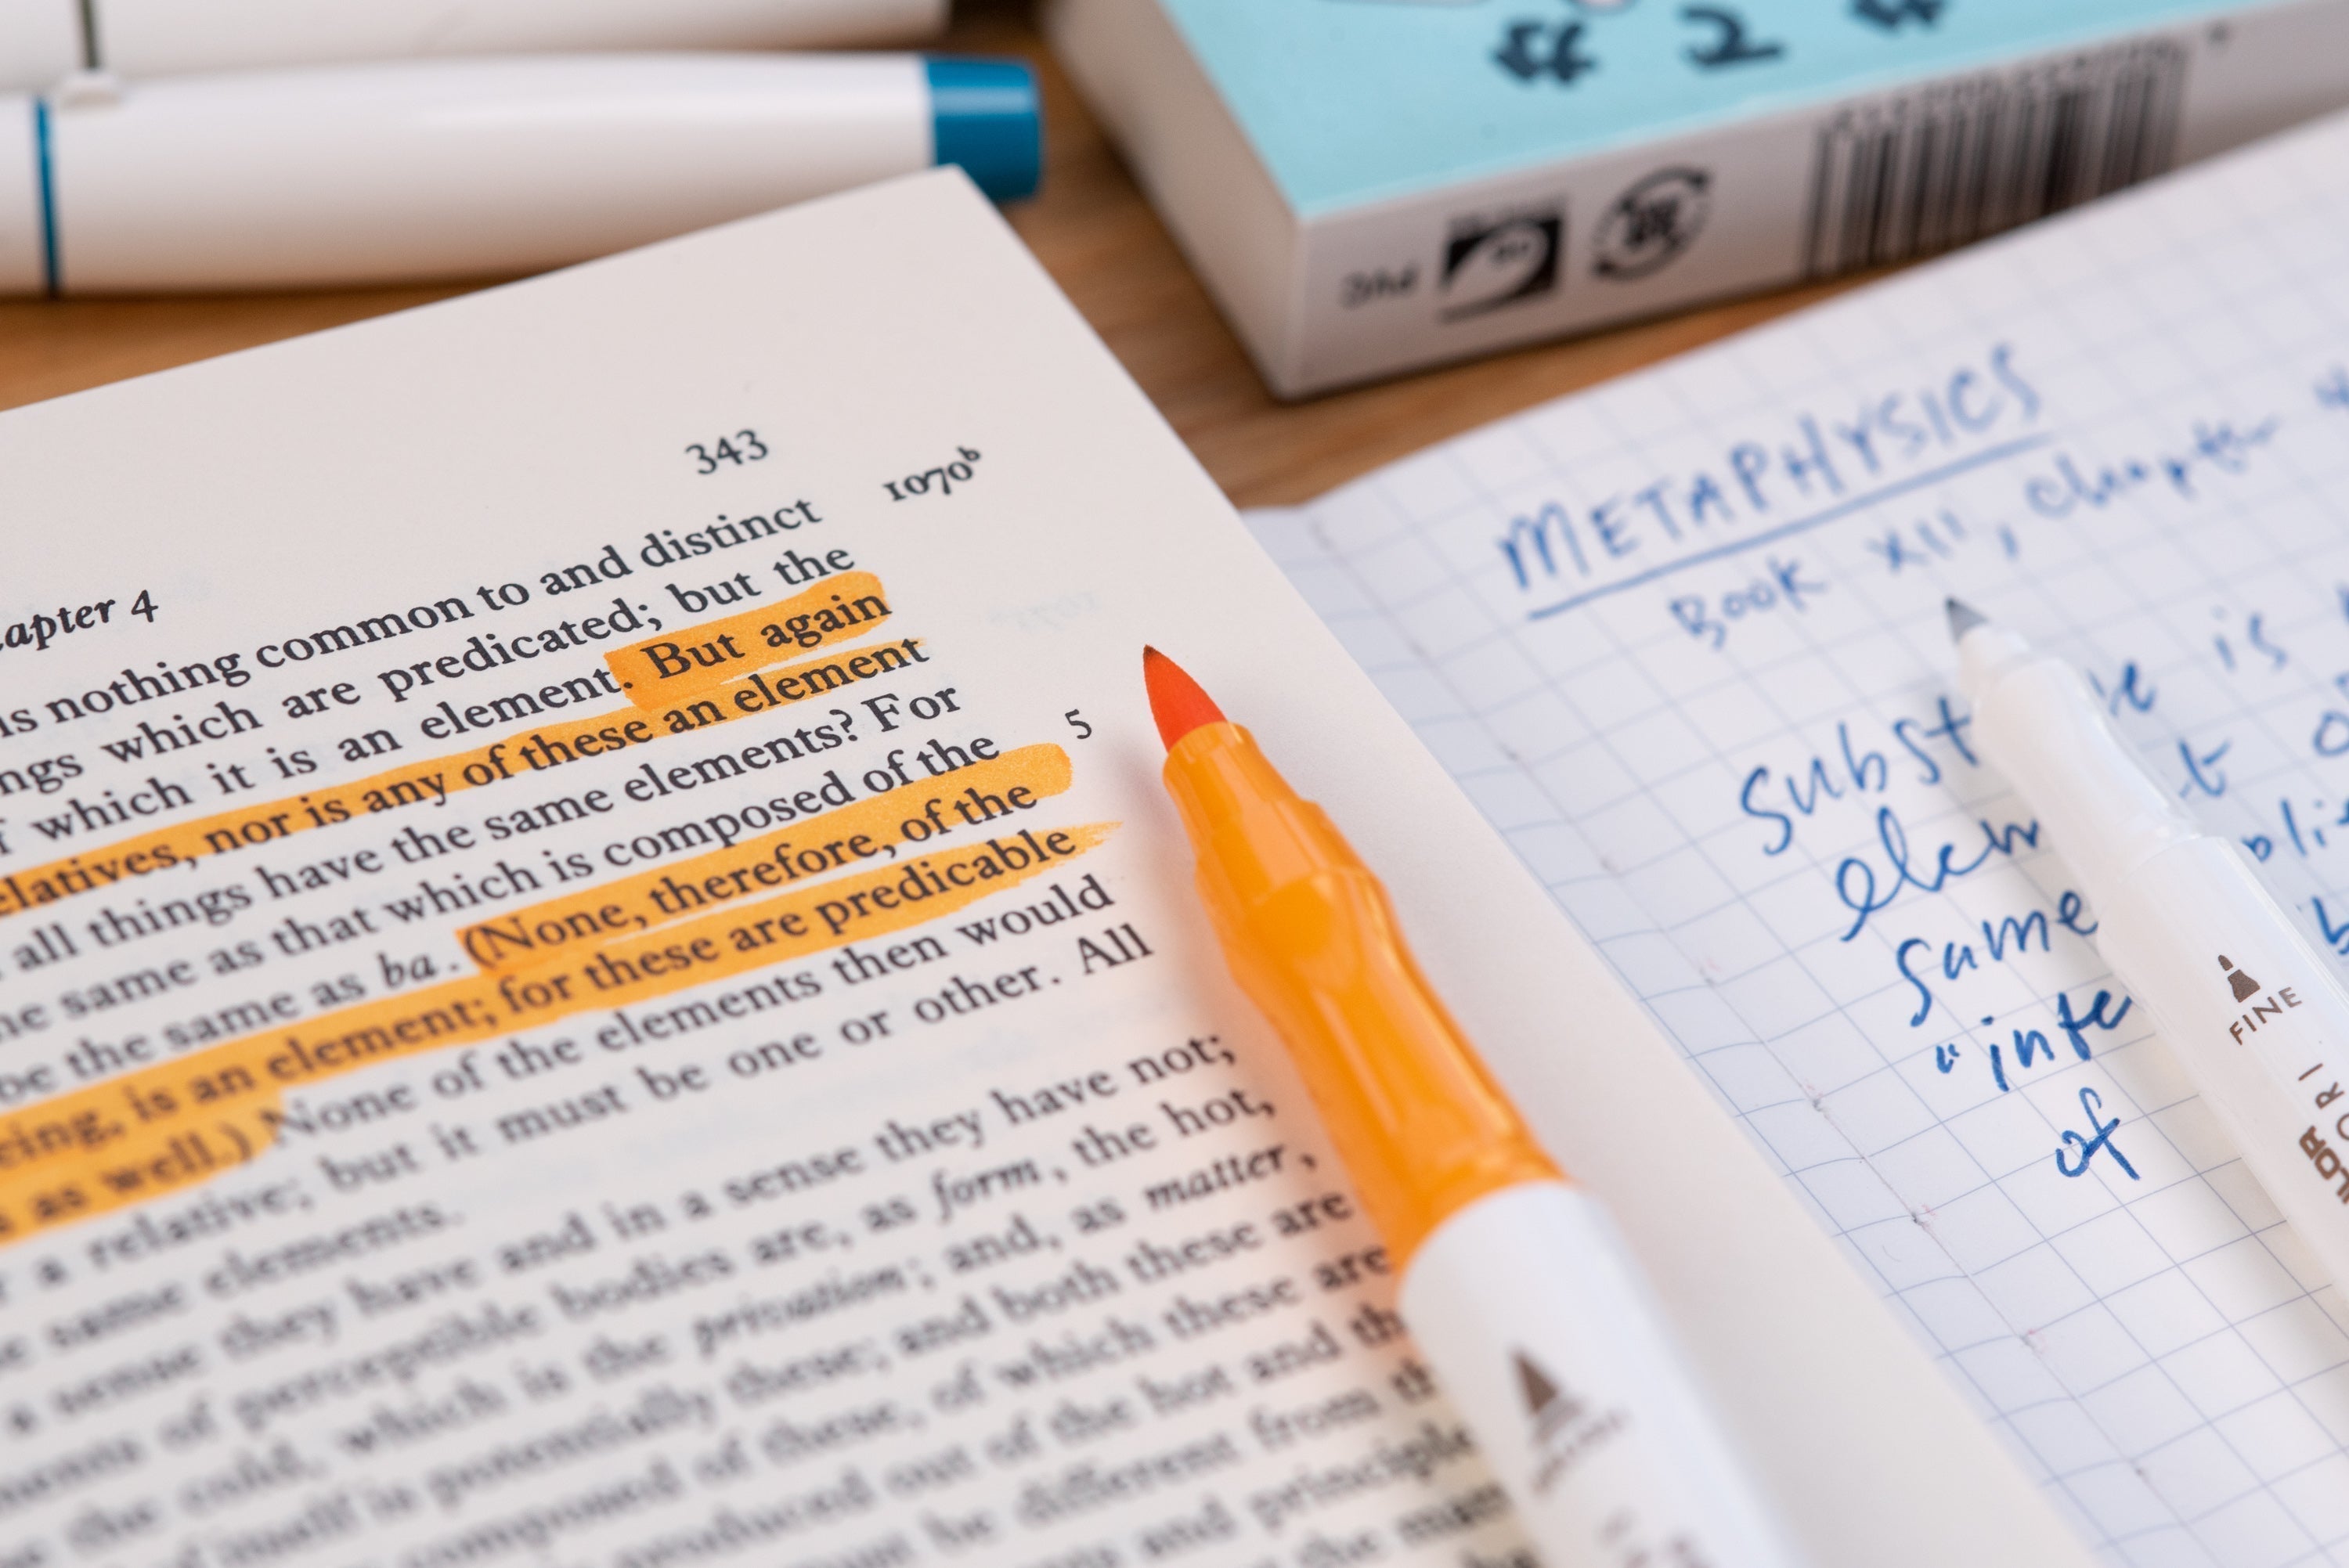 343
1070ᵇ
apter 4
is nothing common to and distinct
ngs which are predicated; but the
f which it is an element. But again
elatives, nor is any of these an element
all things have the same elements? For
he same as that which is composed of the
5
be the same as ba. (None, therefore, of the
eing, is an element; for these are predicable
s as well.) None of the elements then would
r a relative; but it must be one or other. All
e same elements.
a sense they have and in a sense they have not;
ments of perceptible bodies are, as form, the hot,
the cold, which is the privation; and, as matter,
of itself is potentially these; and both these are
composed of these, of which these are
produced out of the hot and th
must be different from th
and principle
PVC
METAPHYSICS
Book XII, chapter 4
subst e is
elem t
same
"inte
of
FINE